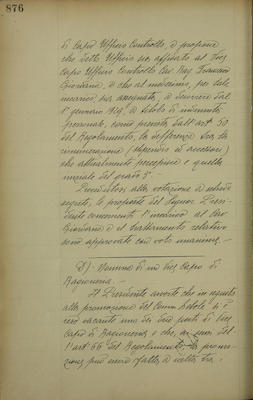 876
di Capo Ufficio Controllo, e propone
che detto Ufficio sia affidato al Vice
Capo Ufficio Controllo Cav. Rag. Francesco
Giordano, e che al medesimo, per tale
incarico sia assegnata, a decorrere dal
1° gennaio 1919, a titolo di indennità
personale, come previsto dall'art. 50
del Regolamento, la differenza tra la
rimunerazione (stipendio ed accessori)
che attualmente percepisce e quella
iniziale del grado 3°. -
Proceduto alla votazione a schede
segrete, le proposte del Signor Presi-
dente concernenti l'incarico al Cav.
Giordano e il trattamento relativo
sono approvate con voto unanime. -
Nomina di un Vice Capo di
Ragioneria. -
Il Presidente avverte che in seguito
alla promozione del Comm.
reso vacante uno dei due posti di Vice
Capo di Ragioneria, e che, ai sensi del
l'art. 66 del Regolamento, la promo-
zione può essere fatta a scelta tra